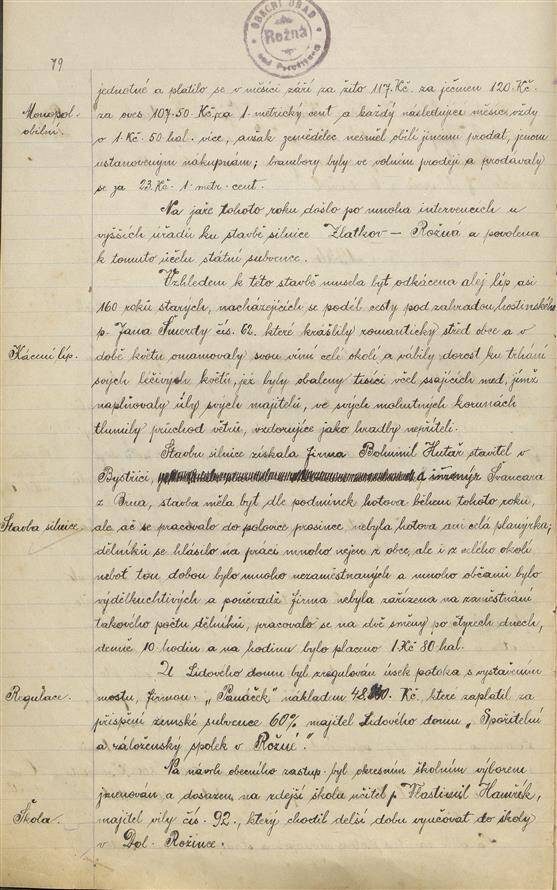 OBECNÍ ÚŘAD
Rožná
nad Pernštejnem
79
jednotné a platilo se v měsíci září za žito 117 Kč. za ječmen 120 Kč.
Monopol obilní.
za oves 107·50 Kč, za 1 metrický cent a každý následující měsíc vždy
o 1 Kč. 50 hal. více, avšak zemědělec nesměl obilí jinému prodat, jenom
ustanoveným nákupnám; brambory byly ve volném prodeji a prodávaly
se za 23 Kč. 1 metr. cent.
Na jaře tohoto roku došlo po mnoha intervencích u
vyšších úřadů ku stavbě silnice Zlatkov – Rožná a povolena
k tomuto účelu státní subvence.
Vzhledem k této stavbě musela být odkácena alej líp asi
160 roků starých, nacházejících se podél cesty pod zahradou hostinského
p. Jana Šmerdy čís. 62. které krášlily romantický střed obce a v
Kácení líp.
době květu omamovaly svou vůní celé okolí a vábily dorost ku trhání
svých léčivých květů, jež byly obaleny tisíci včel ssajících med, jímž
naplňovaly úly svých majitelů, ve svých mohutných korunách
tlumily průchod větrů, vzdorujíce jako hradby nepříteli.
Stavbu silnice získala firma Bohumil Hutař stavitel v
Bystřici, a inženýr Švancara
z Brna, stavba měla být dle podmínek hotova během tohoto roku,
Stavba silnice.
ale ač se pracovalo do polovice prosince nebyla hotova ani celá planýrka;
dělníků se hlásilo na práci mnoho nejen z obce, ale i z celého okolí
neboť tou dobou bylo mnoho nezaměstnaných a mnoho občanů bylo
výdělkuchtivých a poněvadž firma nebyla zařízena na zaměstnání
takového počtu dělníků, pracovalo se na dvě směny po čtyrech dnech,
denně 10 hodin a na hodinu bylo placeno 1 Kč 80 hal.
U Lidového domu byl zregulován úsek potoka s vystavením
Regulace.
mostu, firmou „Panáček" nákladem Kč, které zaplatil za
přispění zemské subvence 60% majitel Lidového domu „Spořitelní
a záloženský spolek v Rožné."
Na návrh obecního zastup. byl okresním školním výborem
jmenován a dosazen na zdejší školu učitel p. Vlastimil
Škola.
majitel vily čís. 92., který chodil delší dobu vyučovat do školy
v Dol. Rožínce.